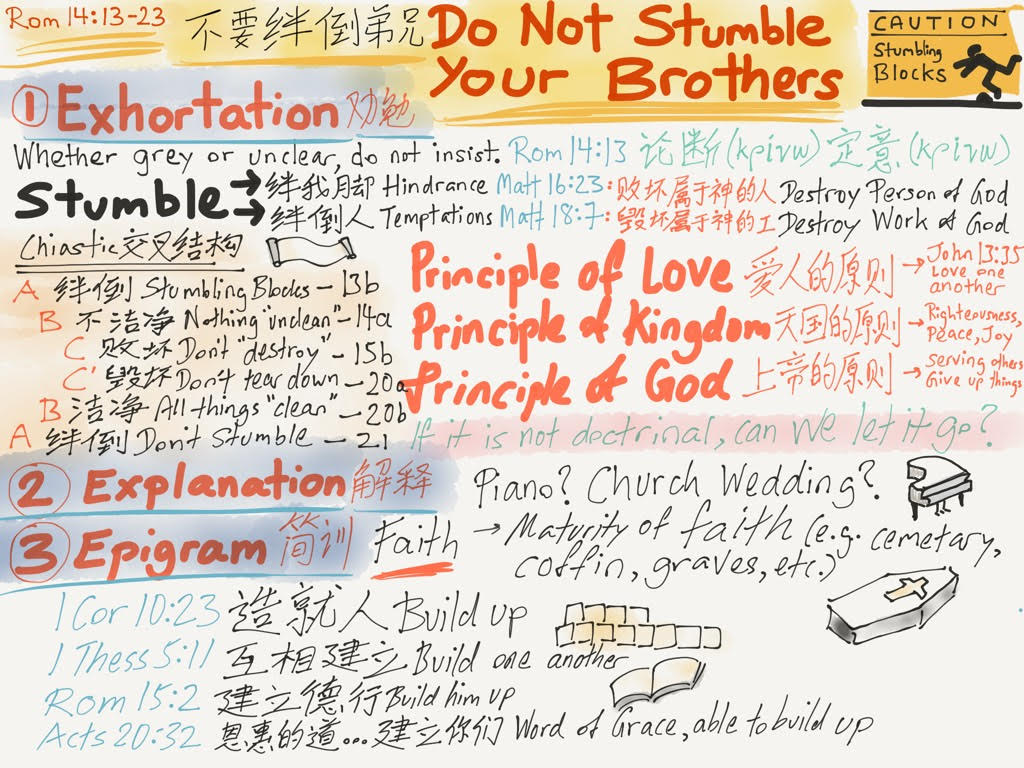 Rom 14:13-23 不要绊倒弟兄 Do Not Stumble
Your Brothers
CAUTION
Stumbling
Blocks
① Exhortation 劝勉
Whether grey or unclear, do not insist. Rom 14:13 论断(kpivw) 定意(kpivw)
Stumble → 绊我脚 Hindrance Matt 16:23: 败坏属于神的人 Destroy Person of God
→ 绊倒人 Temptations Matt 18:7: 毁坏属于神的工 Destroy Work of God
Chiastic 交叉结构
A 绊倒 Stumbling Blocks - 13b
B 不洁净 Nothing "unclean" - 14a
C 败坏 Don't "destroy" - 15b
C' 毁坏 Don't tear down - 20a
B 洁净 All things "clean" - 20b
A 绊倒 Don't Stumble - 21
Principle of Love 爱人的原则 → John 13:35
Love one
another
Principle of Kingdom 天国的原则 → Righteousness,
Peace, Joy
Principle of God 上帝的原则 → serving others
Give up things
If it is not doctrinal, can we let it go?
② Explanation 解释 Piano? Church Wedding?
③ Epigram 简训 Faith → Maturity of faith (e.g. cemetary,
coffin, graves, etc.)
1 Cor 10:23 造就人 Build up
1 Thess 5:11 互相建立 Build one another
Rom 15:2 建立德行 Build him up
Acts 20:32 恩惠的道...建立你们 Word of Grace, able to build up